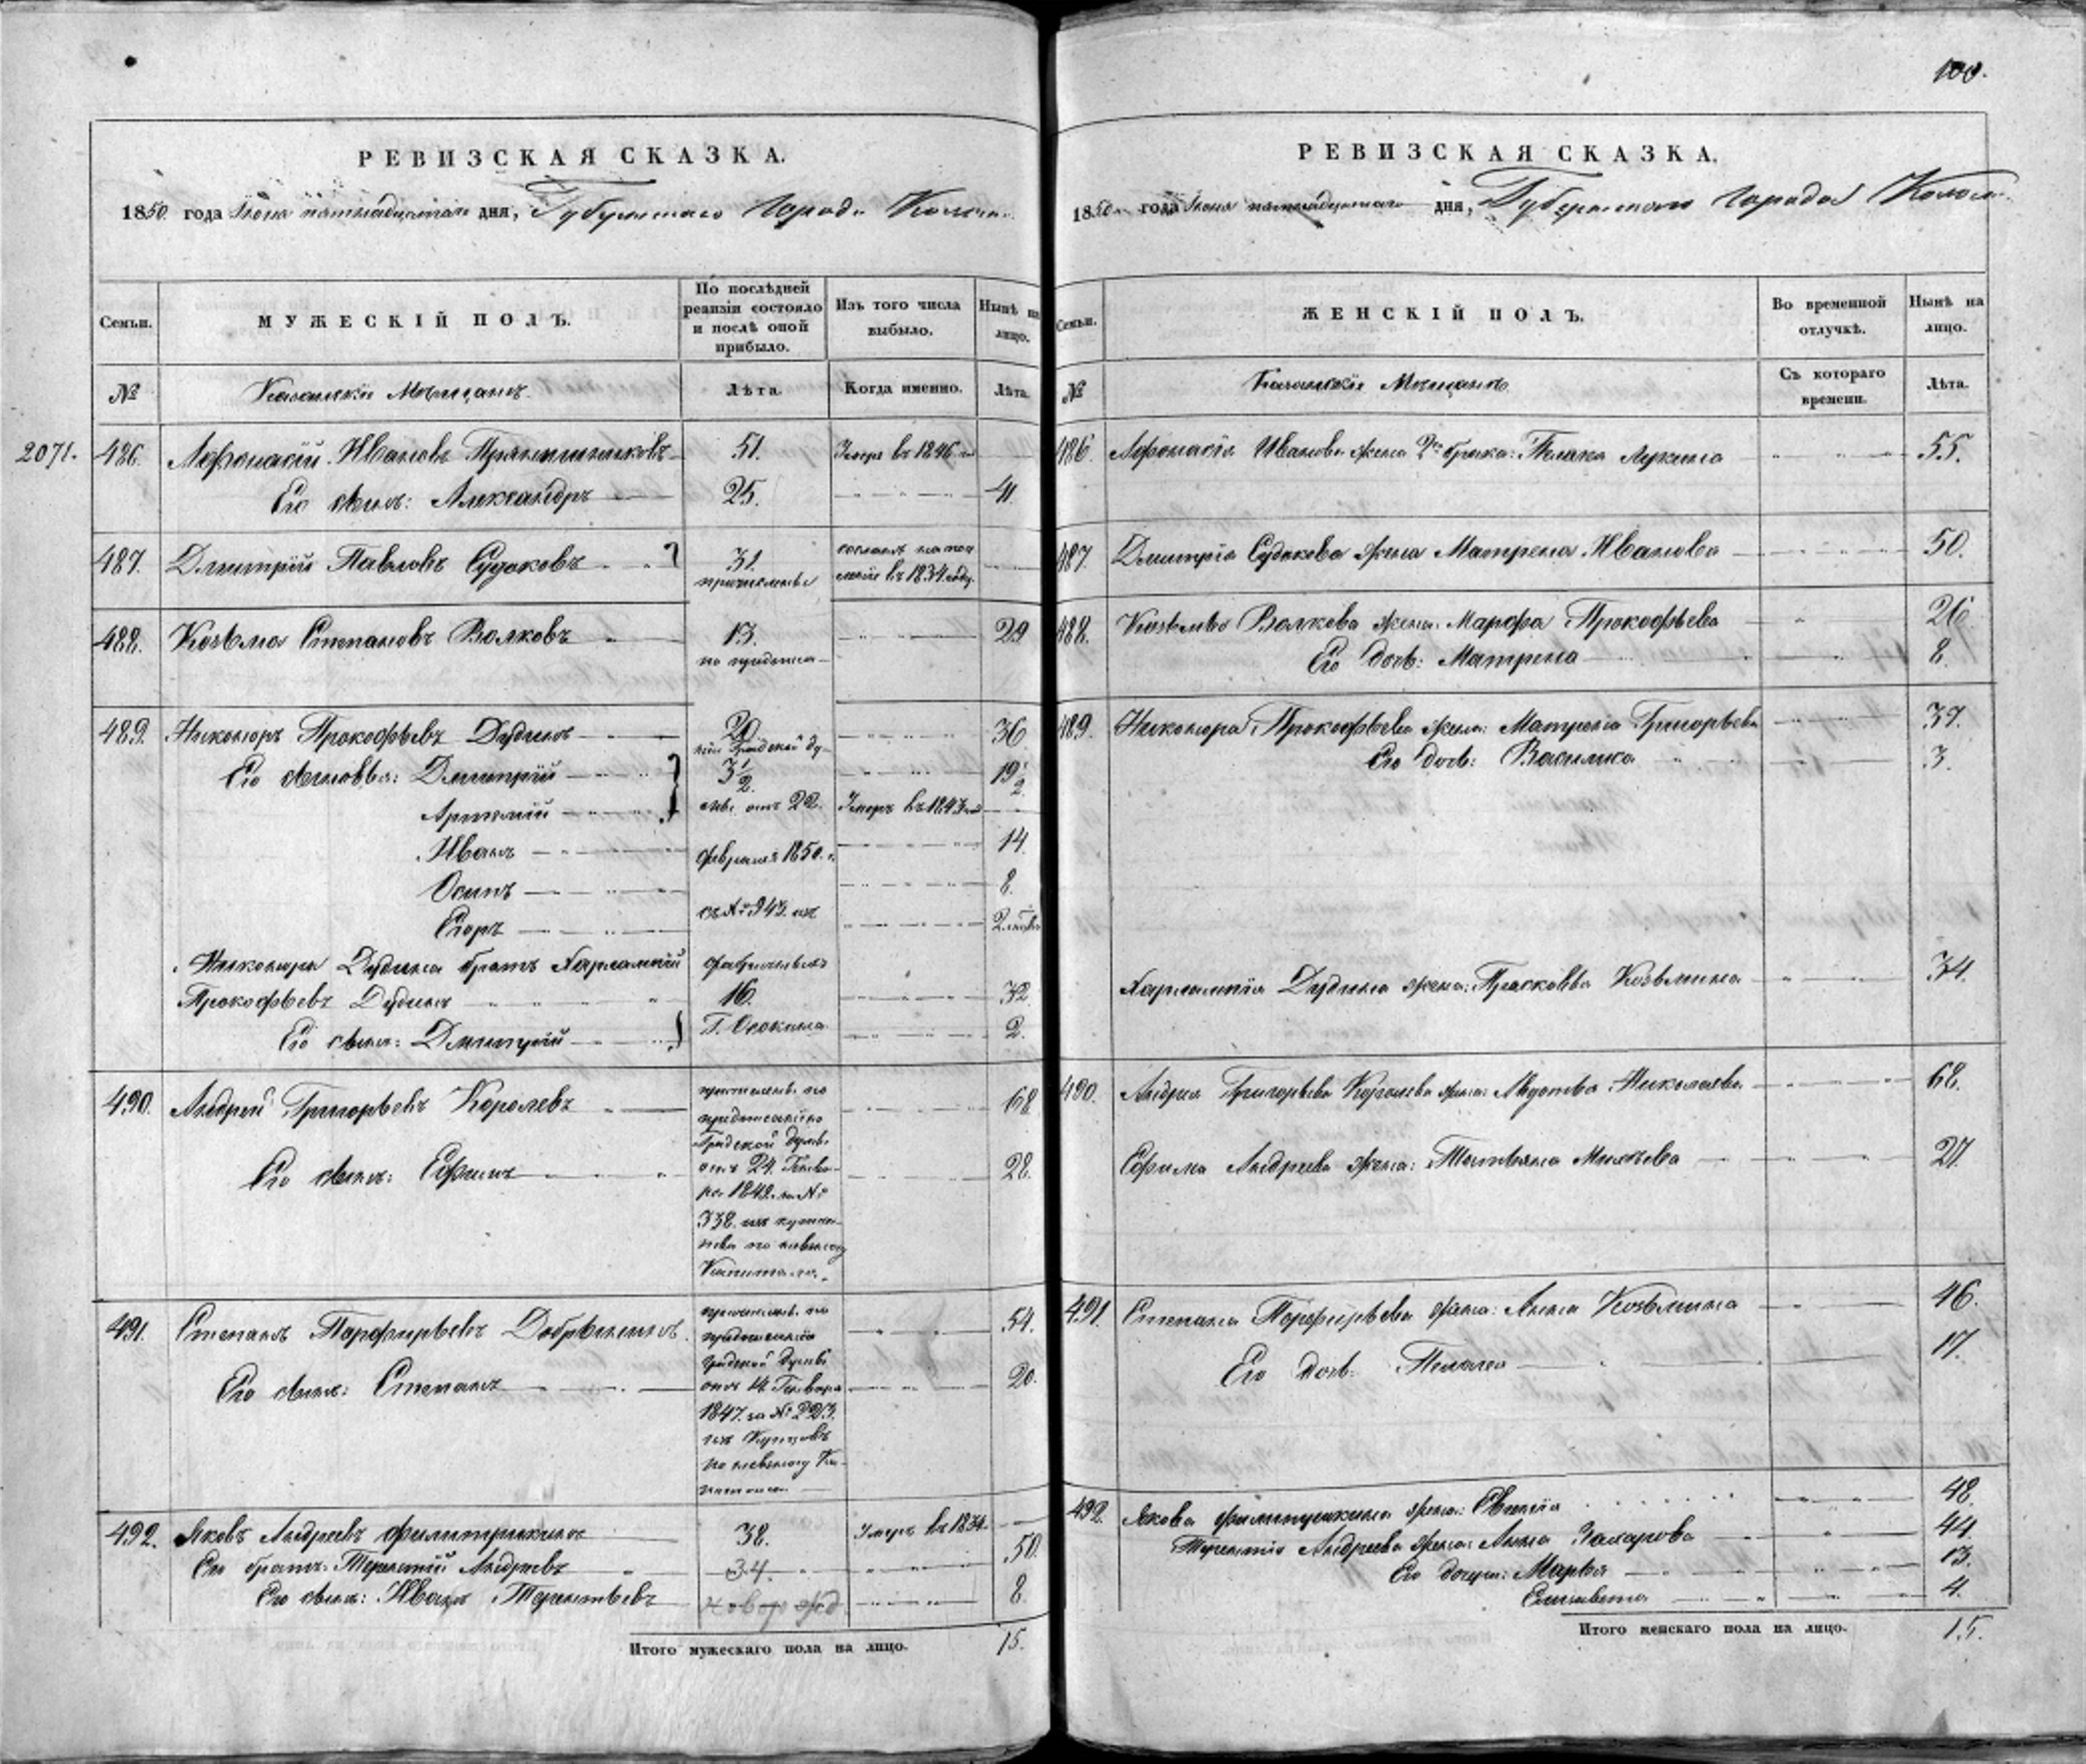 100.
РЕВИЗСКАЯ СКАЗКА.
1850. года Іюня пятнадцатаго дня, Губернскаго Города Казани.
Семьи.
МУЖЕСКІЙ ПОЛЪ.
По послѣдней ревизіи состояло и послѣ оной прибыло.
Изъ того числа выбыло.
Нынѣ на лицо.
№
Казанскіи Мѣщанѣ.
Лѣта.
Когда именно.
Лѣта.
2071. 486. Афонасій Ивановъ Прянишниковъ 51. Умеръ въ 1846
Его сынъ: Александръ 25. 41
487. Дмитрій Павловъ Судаковъ 31. сосланъ на посе
леніе въ 1834 году.
488. Козьма Степановъ Волковъ 13. 29
489. Никоноръ Прокофьевъ Дудинъ 20. 36
Градской ду-
Его сыновья: Дмитрій 3½ 19½
Артемій отъ 22. Умеръ въ 1843
Иванъ февраля 1850. 14
Осипъ 8.
Егоръ за № 943. изъ 2
Никонора Дудина братъ Харлампій
Прокофьевъ Дудинъ 16. 32
Его сынъ: Дмитрій Г. Осокина 2.
490. Андрей Григорьевъ Королевъ 68
Градской Думы
Его сынъ: Ефимъ отъ 24. Генва- 28.
ря 1842. за №
338. изъ купече-
Капитала.
491. Степанъ Парфирьевъ Добрынинъ 54.
градской Думы
Его сынъ: Степанъ отъ 14 Генваря 20.
1847. за № 223.
изъ Купцовъ
492. Яковъ Андреевъ Филипушкинъ 38. Умеръ въ 1834.
Его братъ: Терентій Андреевъ 34. 50.
Его сынъ: Иванъ Терентьевъ новорожд 8.
Итого мужескаго пола на лицо. 15.
РЕВИЗСКАЯ СКАЗКА.
1850 года Іюня пятнадцатаго дня, Губернскаго Города Казани.
Семьи.
ЖЕНСКІЙ ПОЛЪ.
Во временной отлучкѣ.
Нынѣ на лицо.
№
Казанскія Мѣщанкѣ
Съ котораго времени.
Лѣта.
486. Афонасія Иванова жена 2го брака: Пелагея Лукина 55.
487. Дмитрія Судакова жена Матрена Иванова 50.
488. Козьмы Волкова жена: Марфа Прокофьева 26
Его дочь: Матрена 8.
489. Никонора Прокофьева жена: Матрена Григорьева 37.
Его дочь: Василиса 3.
Харлампія Дудина жена: Прасковья Козьмина 34.
490. Андрея Григорьева Королева жена: Авдотья Николаева 68.
Ефима Андреева жена: Татьяна 27.
491. Степана Парфирьева жена: Анна Козьмина 46.
Его дочь: Пелагея 17.
492. Якова Филипушкина жена: 48.
Терентія Андреева жена: Анна Захарова 44.
Его дочери: Марья 13.
Елизавета 4.
Итого женскаго пола на лицо. 15.